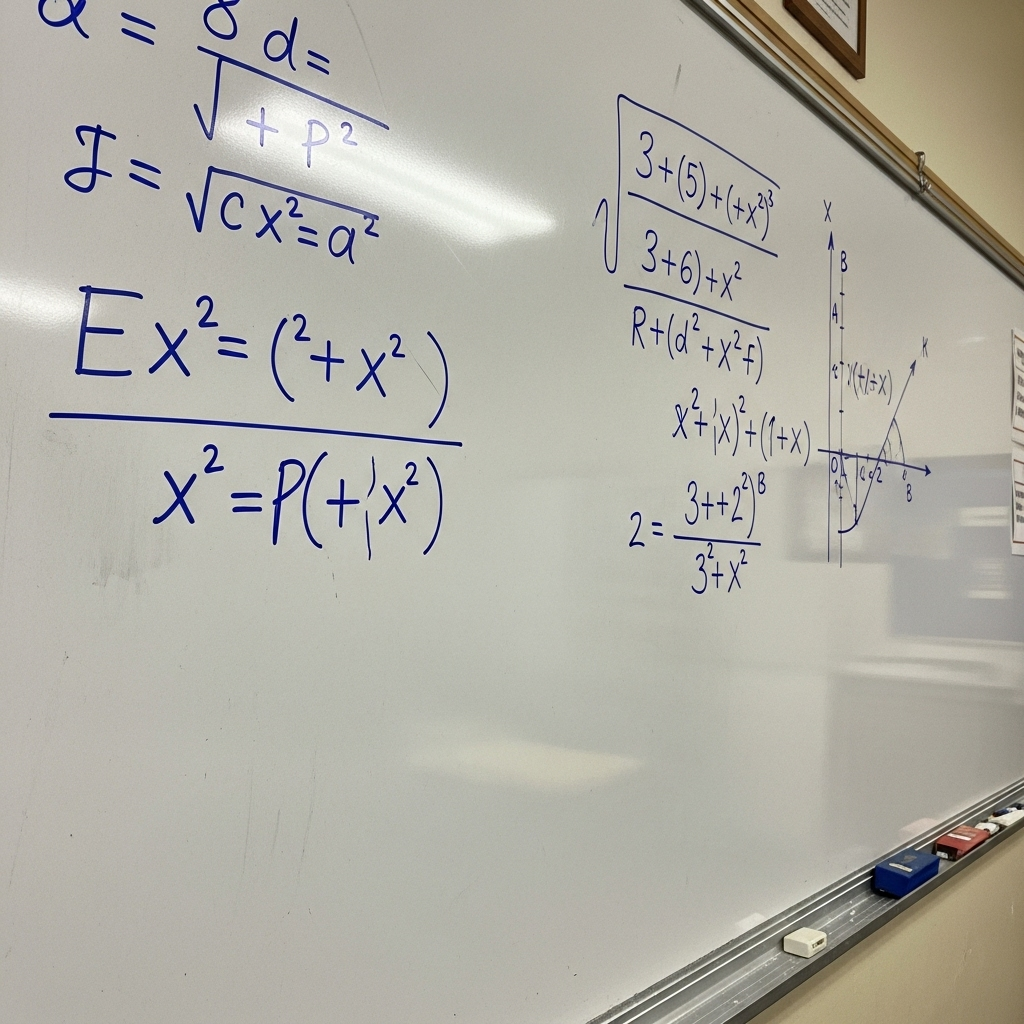 a = 8 d=
√ + p²
J = √Cx²=a²
Ex²=(²+x² )
x²=P(+¦x²)
√ 3+(5)+(+x²)³
3+6)+x²
R+(d²+x²f)
x²+¦x)²+(1+x)
2= 3++2²)ᴮ
3²+x²
X
B
A
K
0
2
B